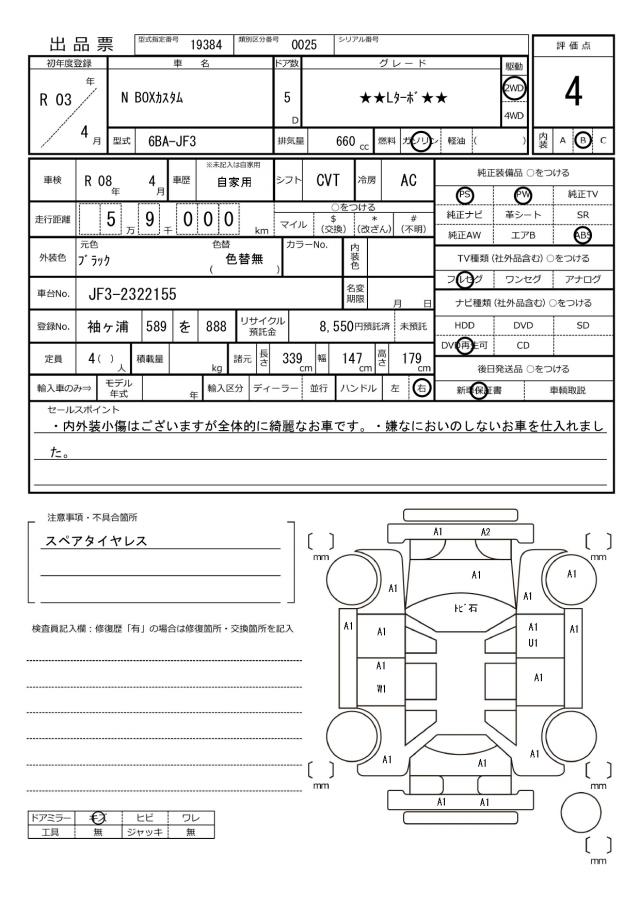 出品票 型式指定番号 19384 類別区分番号 0025 シリアル番号
評価点
4
初年度登録 車名 ドア数 グレード 駆動
R 03 年 4 月 N BOXカスタム 5 D ★★Lターボ★★ 2WD 4WD
型式 6BA-JF3 排気量 660 cc 燃料 ガソリン 軽油 ( ) 内装 A B C
車検 R 08 年 4 月 車歴 ※未記入は自家用 自家用 シフト CVT 冷房 AC
走行距離 5 万 9 千 0 0 0 km ○をつける
マイル $(交換) *(改ざん) #(不明)
外装色 元色 ブラック 色替 ( 色替無 ) カラーNo. 内装色
車台No. JF3-2322155 名変期限 月 日
登録No. 袖ヶ浦 589 を 888 リサイクル預託金 8,550円預託済 未預託
定員 4( ) 人 積載量 kg 諸元 長さ 339 cm 幅 147 cm 高さ 179 cm
輸入車のみ⇒ モデル年式 年 輸入区分 ディーラー 並行 ハンドル 左 右
純正装備品 ○をつける
PS PW 純正TV
純正ナビ 革シート SR
純正AW エアB ABS
TV種類 (社外品含む) ○をつける
フルセグ ワンセグ アナログ
ナビ種類 (社外品含む) ○をつける
HDD DVD SD
DVD再生可 CD
後日発送品 ○をつける
新車保証書 車輌取説
セールスポイント
・内外装小傷はございますが全体的に綺麗なお車です。・嫌なにおいのしないお車を仕入れまし
た。
注意事項・不具合箇所
スペアタイヤレス
検査員記入欄：修復歴「有」の場合は修復箇所・交換箇所を記入
ドアミラー キズ ヒビ ワレ
工具 無 ジャッキ 無
A1 A2
mm mm
A1 A1 A1 A1
トビ石
A1 A1 A1 A1
U1
A1 A1
W1
A1 A1 A1
A1 A1
mm mm
mm